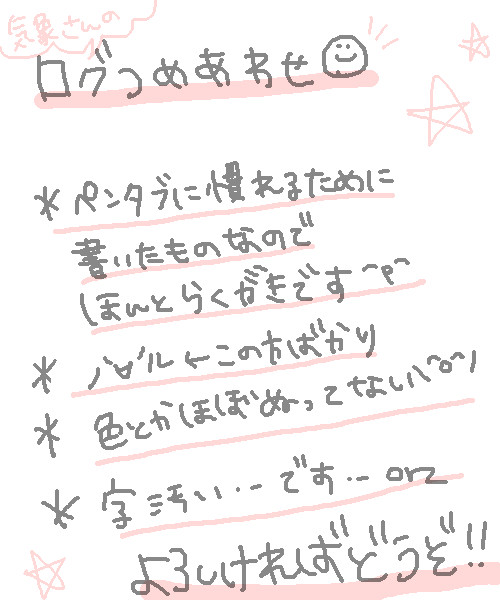 気象さんの
ログつめあわせ
* ペンタブに慣れるために
書いたものなので
ほんとらくがきです^p^
* バダル←この方ばかり
* 色とかほぼぬってない\^o^/
* 字汚い・・ーです・・ーorz
よろしければどうぞ!!